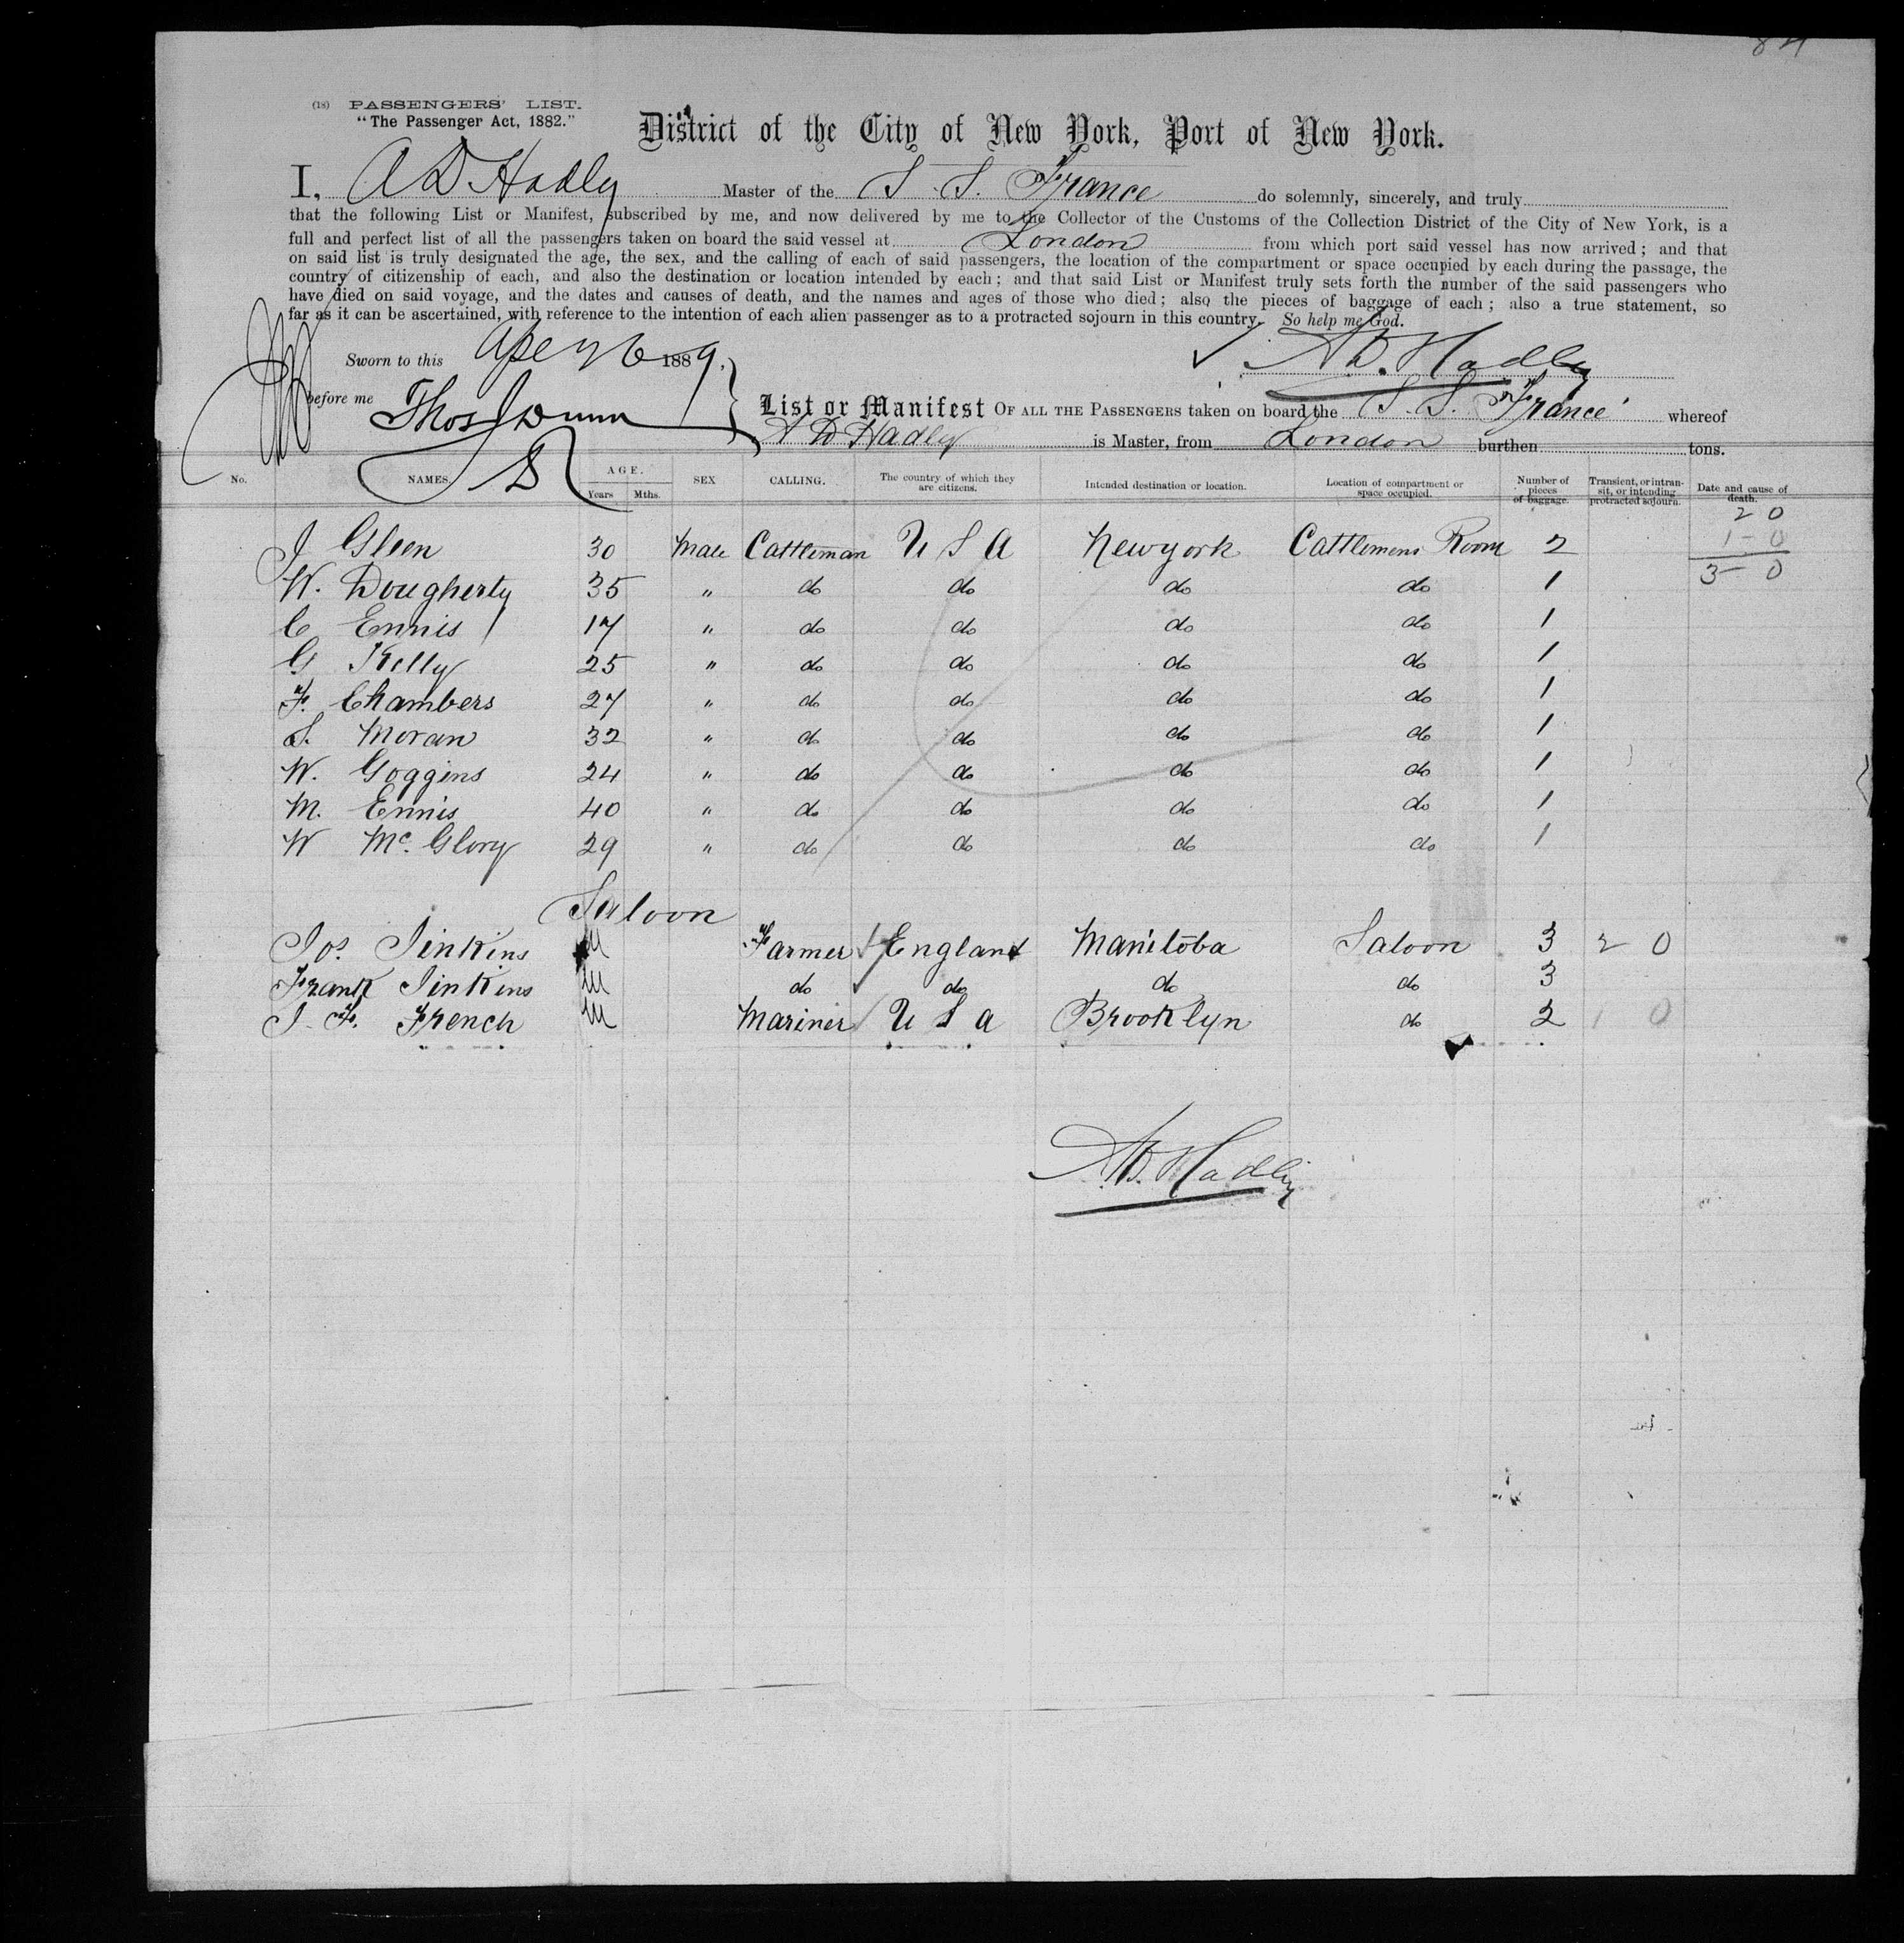 84
(18) PASSENGERS' LIST.
"The Passenger Act, 1882."
District of the City of New York, Port of New York.
I, A D Hadley Master of the S. S. France do solemnly, sincerely, and truly
that the following List or Manifest, subscribed by me, and now delivered by me to the Collector of the Customs of the Collection District of the City of New York, is a
full and perfect list of all the passengers taken on board the said vessel at London from which port said vessel has now arrived; and that
on said list is truly designated the age, the sex, and the calling of each of said passengers, the location of the compartment or space occupied by each during the passage, the
country of citizenship of each, and also the destination or location intended by each; and that said List or Manifest truly sets forth the number of the said passengers who
have died on said voyage, and the dates and causes of death, and the names and ages of those who died; also the pieces of baggage of each; also a true statement, so
far as it can be ascertained, with reference to the intention of each alien passenger as to a protracted sojourn in this country. So help me God.
Sworn to this Apl 26 1889,
A D. Hadley
before me Thos J Dunn
List or Manifest OF ALL THE PASSENGERS taken on board the S. S. France whereof
A D Hadley is Master, from London burthen tons.
No. NAMES. AGE. Years Mths. SEX CALLING. The country of which they are citizens. Intended destination or location. Location of compartment or space occupied. Number of pieces of baggage. Transient, or intransit, or intending protracted sojourn. Date and cause of death.
2 0
1 - 0
3 - 0
J Gleen 30 Male Cattleman U S A Newyork Cattlemens Room 2
W. Dougherty 35 " do do do do 1
C Ennis 17 " do do do do 1
G Kelly 25 " do do do do 1
F. Chambers 27 " do do do do 1
S. Moran 32 " do do do do 1
W. Goggins 24 " do do do do 1
M. Ennis 40 " do do do do 1
W McGlory 29 " do do do do 1
Saloon
Jos. Jinkins M Farmer England Manitoba Saloon 3 2 0
Frank Jinkins M do do do do 3
J. F. French M Mariner U S A Brooklyn do 2 1 0
A.D. Hadley